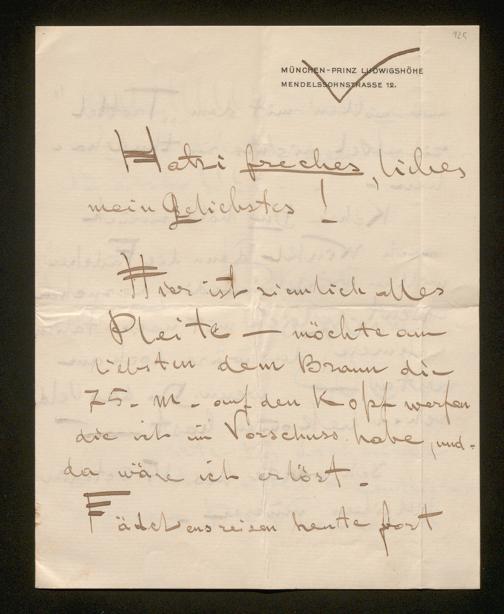 125
MÜNCHEN-PRINZ LUDWIGSHÖHE
MENDELSSOHNSTRASSE 12.
Hatzi freches, liebes
mein Geliebstes !
Hier ist ziemlich alles
Pleite — möchte am
liebsten dem Braun die
75.- M.- auf den Kopf werfen
die ich im Vorschuss habe, und-
da wäre ich erlöst.
Fädelensreisen heute fort